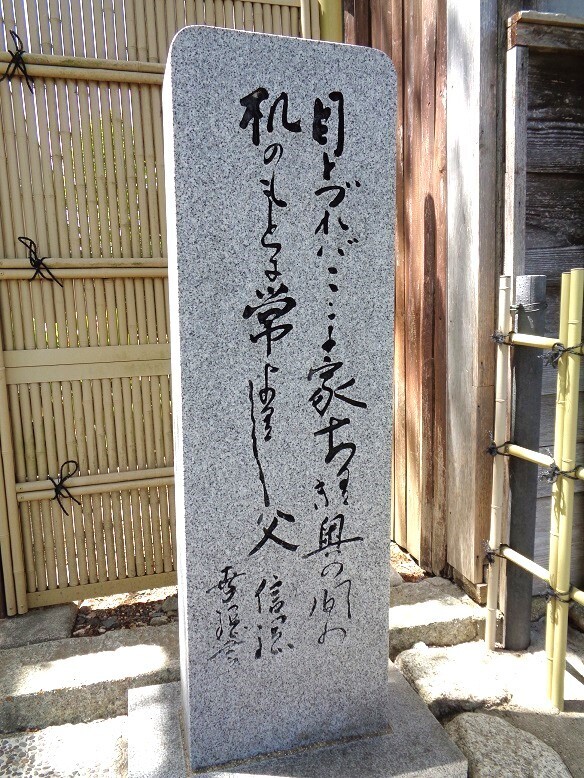 目とづればここに家ありき奥の間の
机のもとに常よりし父
信綱
幸綱書